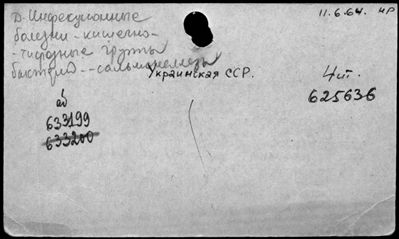 Д. Инфекционные
болезни - кишечно-
-тифозные группы
бактерий -- сальмонеллезы
11.6.64. ИР
Украинская ССР.
4 шт.
625636
аб
633199
633200